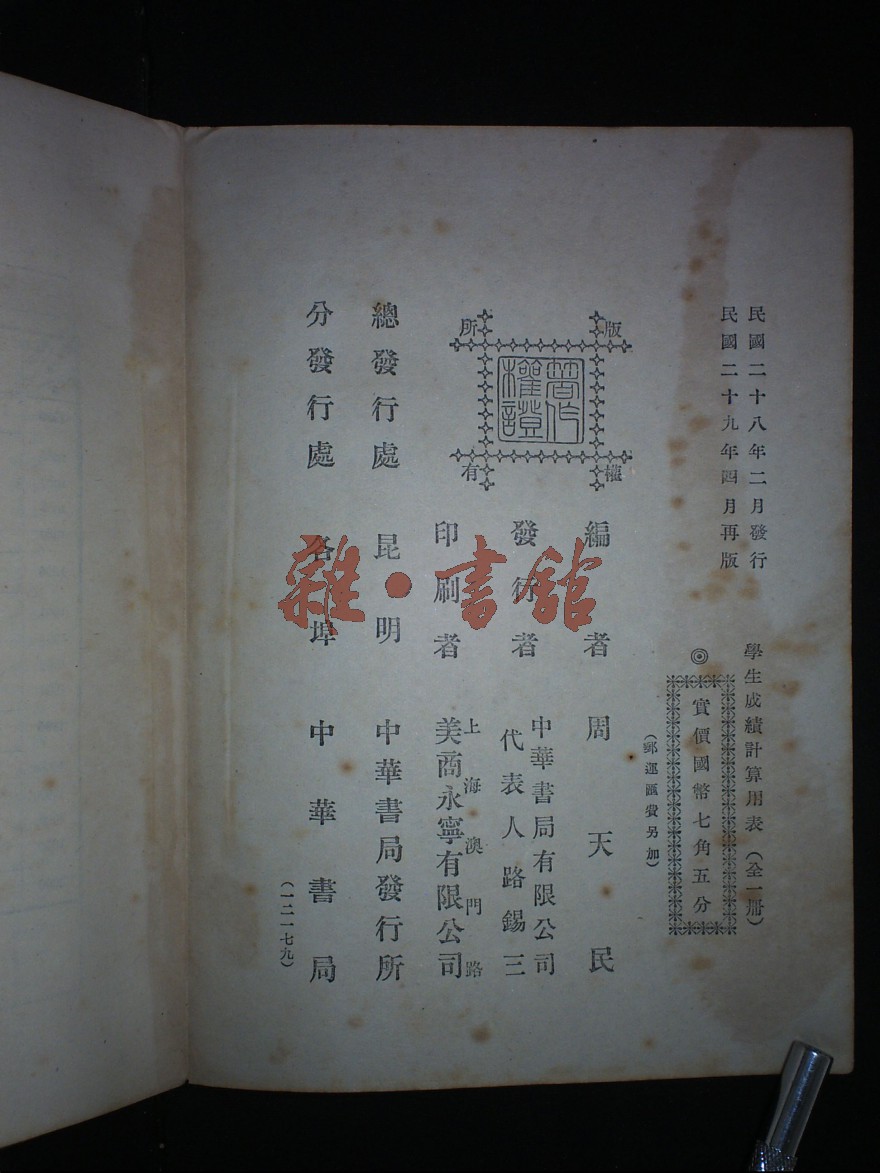 民國二十八年二月發行
民國二十九年四月再版
學生成績計算用表（全一冊）
◎實價國幣七角五分
（郵運匯費另加）
版權所有
著作權證
編者 周天民
發行者 中華書局有限公司
代表人路錫三
印刷者 上海澳門路
美商永寧有限公司
總發行處 昆明 中華書局發行所
分發行處 各埠 中華書局
（一二一七九）
雜·書館